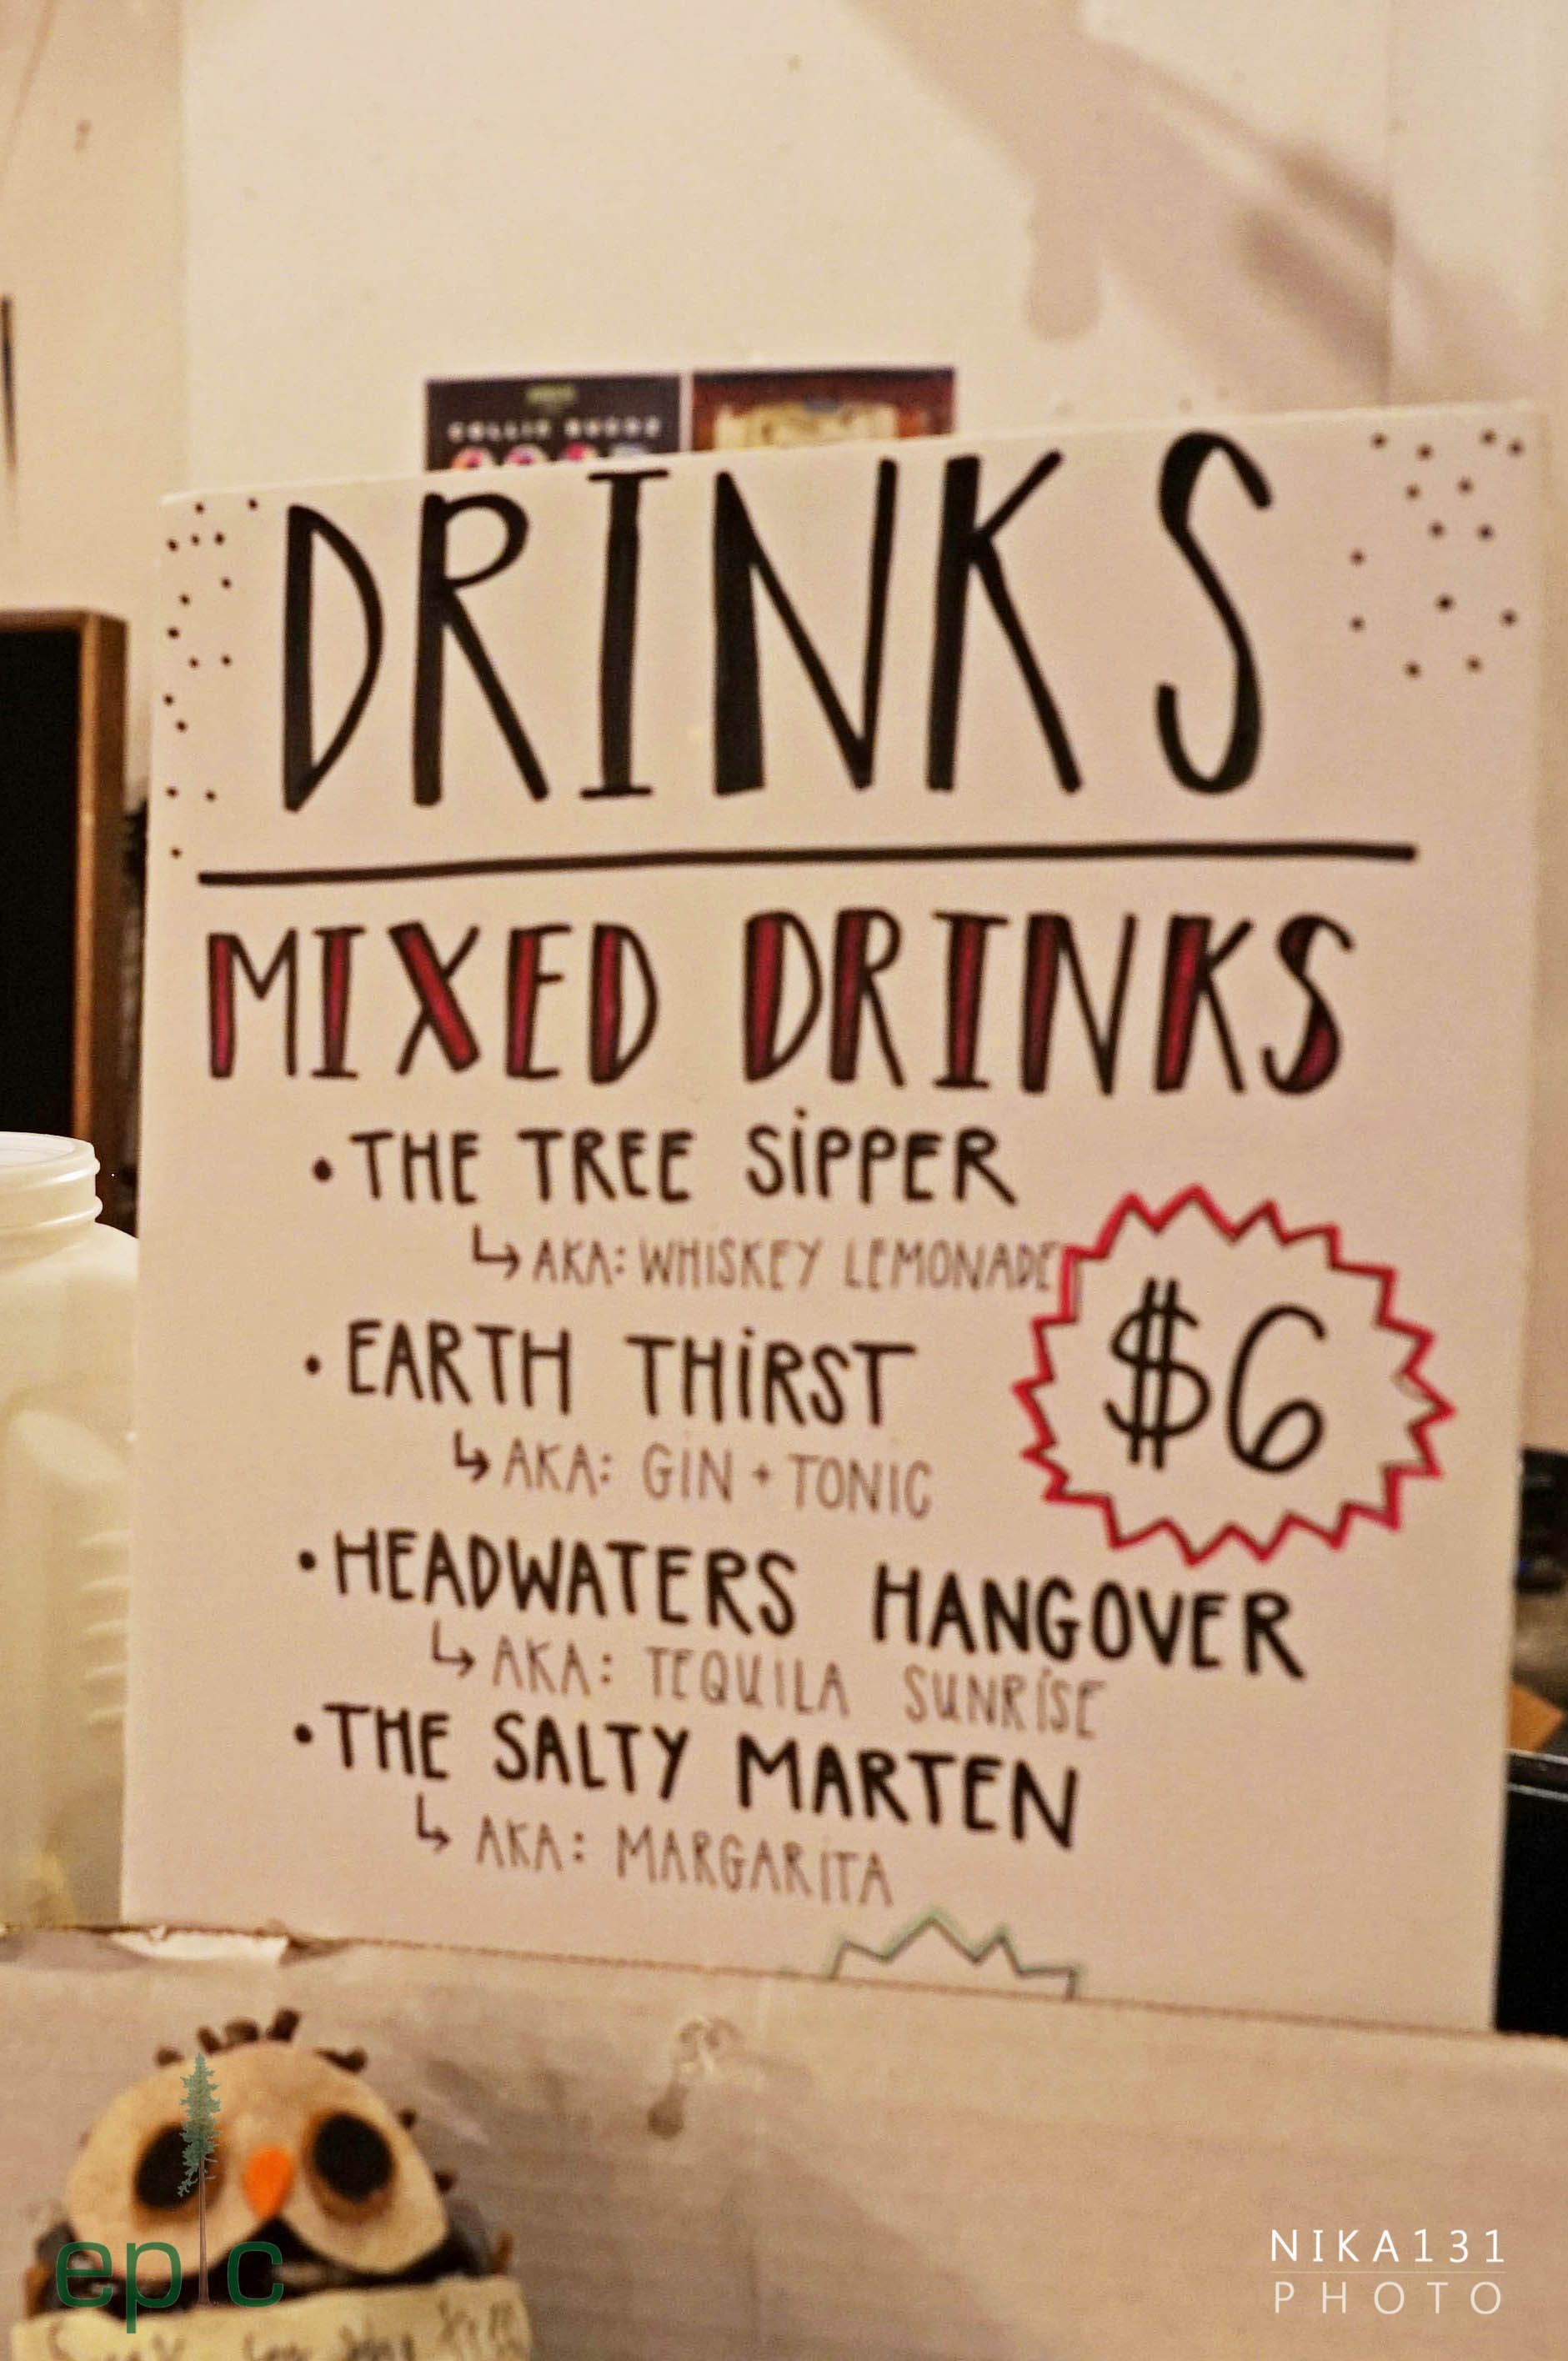 DRINKS
MIXED DRINKS
• THE TREE SiPPER
↳ AKA: WHISKEY LEMONADE
$6
• EARTH THiRST
↳ AKA: GiN + TONIC
• HEADWATERS HANGOVER
↳ AKA: TEQUILA SUNRiSE
• THE SALTY MARTEN
↳ AKA: MARGARiTA
epic
NIKA131
PHOTO